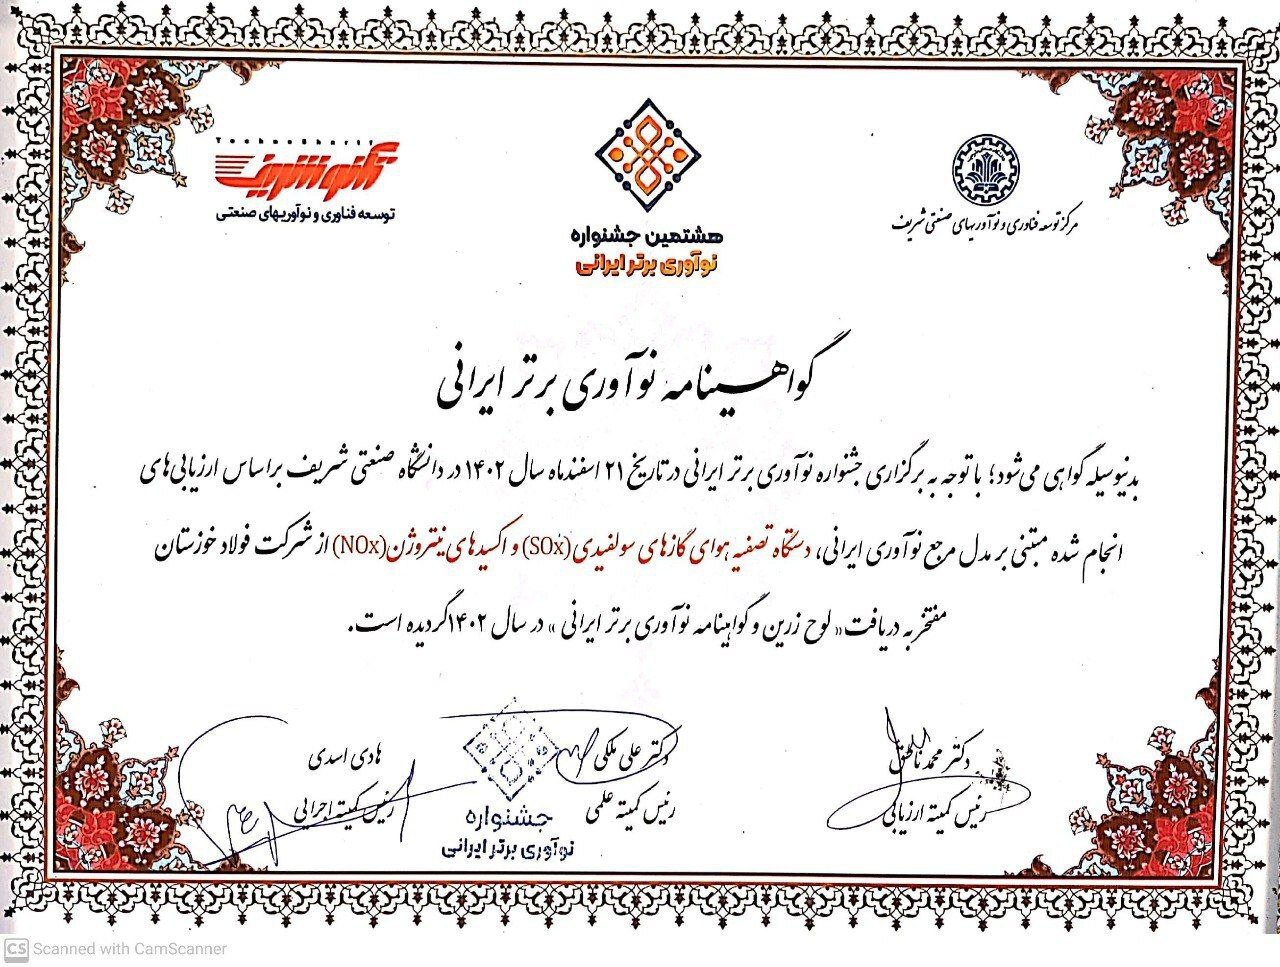 TechnoSharif
تکنوشریف
توسعه فناوری و نوآوریهای صنعتی
هشتمین جشنواره
نوآوری برتر ایرانی
مرکز توسعه فناوری و نوآوریهای صنعتی شریف
گواهینامه نوآوری برتر ایرانی
بدینوسیله گواهی می‌شود؛ با توجه به برگزاری جشنواره نوآوری برتر ایرانی در تاریخ ۲۱ اسفندماه سال ۱۴۰۲ در دانشگاه صنعتی شریف براساس ارزیابی‌های
انجام شده مبتنی بر مدل مرجع نوآوری ایرانی، دستگاه تصفیه هوای گازهای سولفیدی (SOx) و اکسیدهای نیتروژن(NOx) از شرکت فولاد خوزستان
مفتخر به دریافت « لوح زرین و گواهینامه نوآوری برتر ایرانی » در سال ۱۴۰۲ گردیده است.
دکتر محمد ناطق
رئیس کمیته ارزیابی
دکتر علی ملکی
رئیس کمیته علمی
هادی اسدی
رئیس کمیته اجرایی
جشنواره
نوآوری برتر ایرانی
CS Scanned with CamScanner